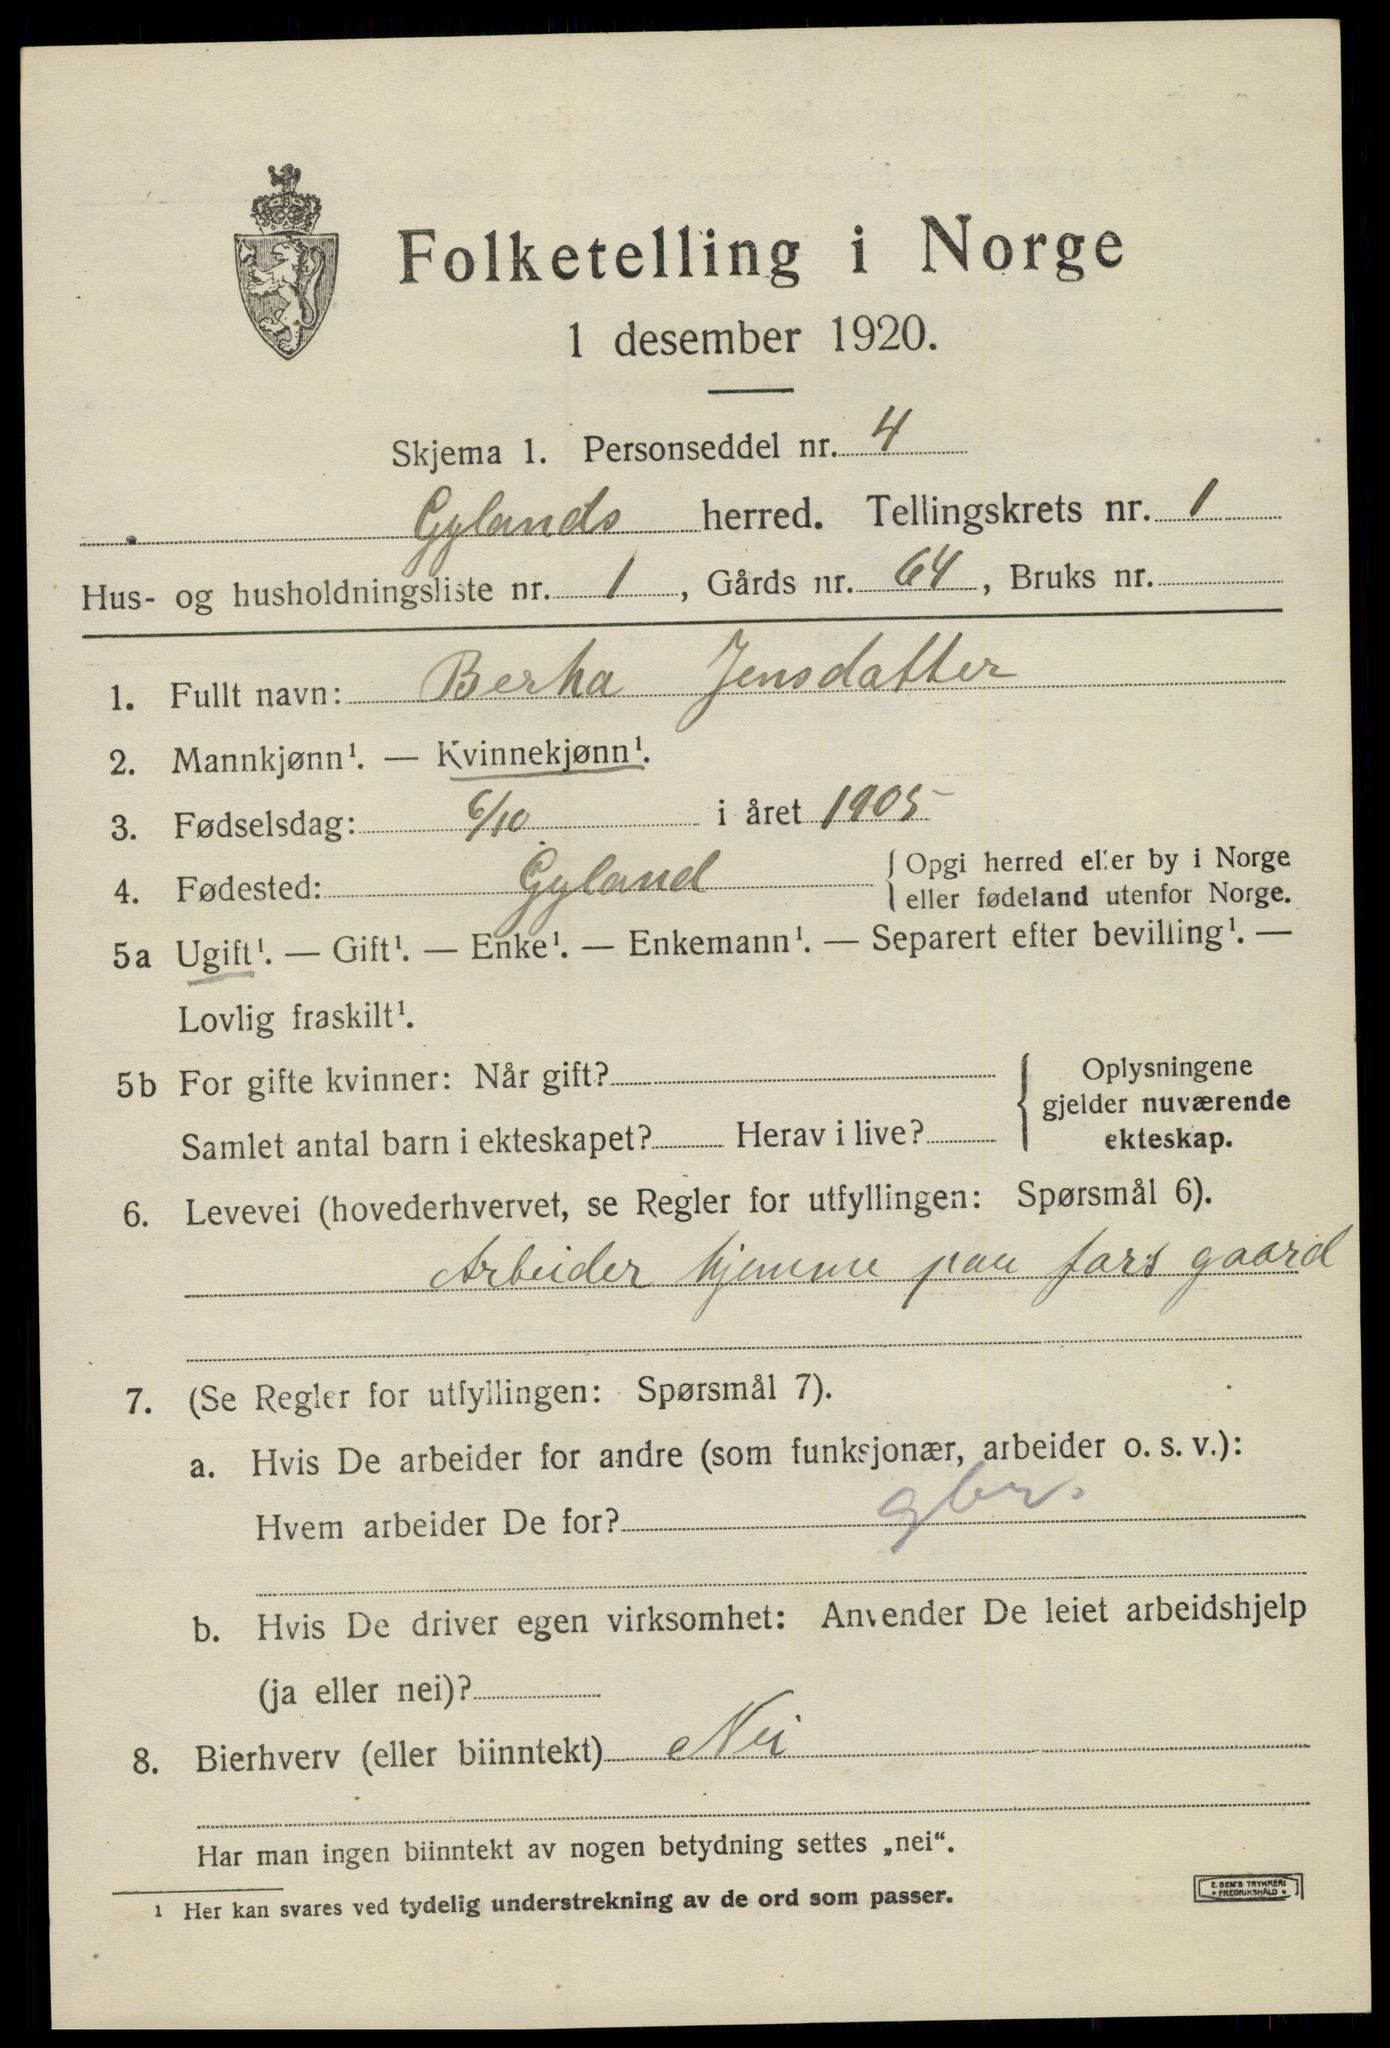 Folketelling i Norge
1 desember 1920.
Skjema 1. Personseddel nr. 4
Gylands herred. Tellingskrets nr. 1
Hus- og husholdningsliste nr. 1, Gårds nr. 64, Bruks nr.
1. Fullt navn: Berha Jensdatter
2. Mannkjønn¹. — Kvinnekjønn¹.
3. Fødselsdag: 6/10 i året 1905
4. Fødested: Gyland { Opgi herred eller by i Norge
eller fødeland utenfor Norge.
5a Ugift¹. — Gift¹. — Enke¹. — Enkemann¹. — Separert efter bevilling¹. —
Lovlig fraskilt¹.
5b For gifte kvinner: Når gift?
Samlet antal barn i ekteskapet? Herav i live?
{ Oplysningene
gjelder nuværende
ekteskap.
6. Levevei (hovederhvervet, se Regler for utfyllingen: Spørsmål 6).
Arbeider hjemme paa fars gaard
7. (Se Regler for utfyllingen: Spørsmål 7).
a. Hvis De arbeider for andre (som funksjonær, arbeider o. s. v.):
Hvem arbeider De for? gbr.
b. Hvis De driver egen virksomhet: Anvender De leiet arbeidshjelp
(ja eller nei)?
8. Bierhverv (eller biinntekt) Nei
Har man ingen biinntekt av nogen betydning settes „nei“.
¹ Her kan svares ved tydelig understrekning av de ord som passer.
E. SEM'S TRYKKERI
• FREDRIKSHALD •